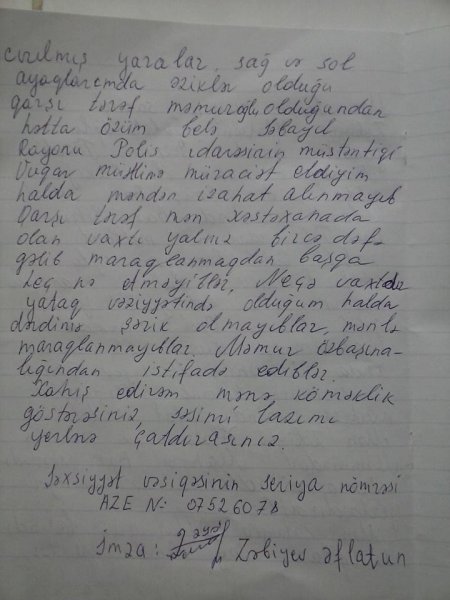 cırılmış yaralar, sağ və sol
ayaqlarımda əziklər olduğu
qarşı tərəf məmuroğlu olduğundan
hətta özüm belə Səbayıl
Rayonu Polis idarəsinin müstəntiqi
Vüqar müraciət etdiyim
halda məndən izahat alınmayıb
Qarşı tərəf mən xəstəxanada
olan vaxtı yalnız bircə dəfə
gəlib maraqlanmaqdan başqa
heç nə etməyiblər. Neçə vaxtdı
yataq vəziyyətində olduğum halda
dərdimə şərik olmayıblar, mənlə
maraqlanmayıblar. Məmur özbaşına-
lığından istifadə ediblər.
Xahiş edirəm mənə köməklik
göstərəsiniz, səsimi lazımı
yerlərə çatdırasınız.
Şəxsiyyət vəsiqəsinin seriya nömrəsi
AZE №: 07526078
İmza: Zəbiyev Əflatun